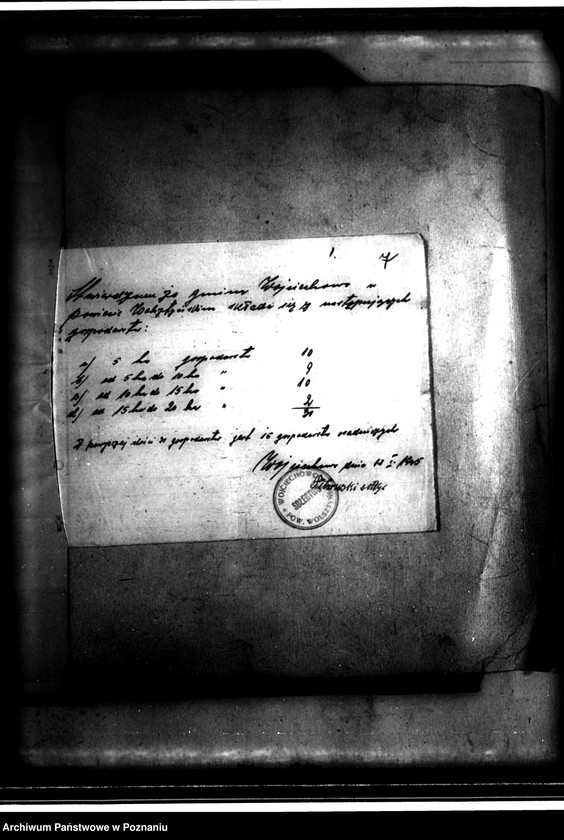 1. 7
Stwierdzam że gmina Wojciechowo w
powiecie Wolsztyńskim składa się z następujących
gospodarstw:
a) 5 ha gospodarstw 10
b) od 5 ha do 10 ha " 9
c) od 10 ha do 15 ha " 10
d) od 15 ha do 20 ha " 2
Z powyższej ilości gospodarstw jest 15 gospodarstw
Wojciechowo dnia 12 I 1945
WOJCIECHOWO
SOŁECTWO
POW. WOLSZTYN
Archiwum Państwowe w Poznaniu